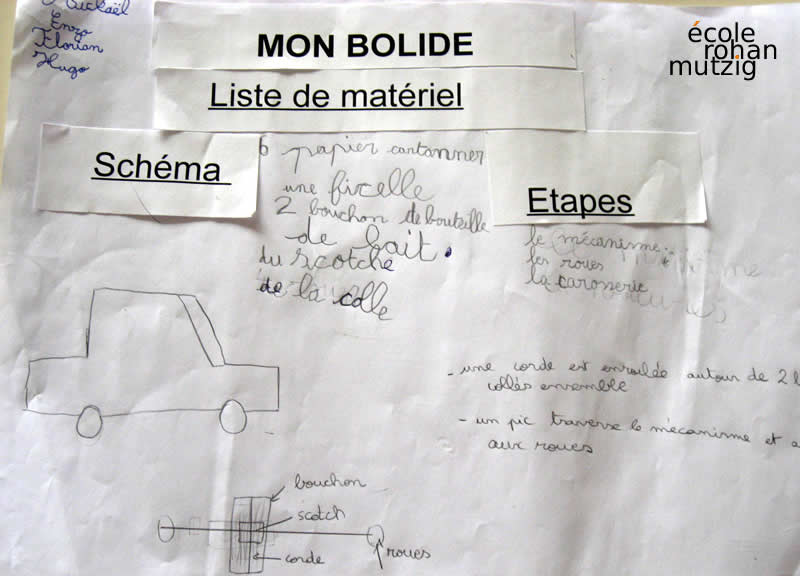 Enzo
Florian
Hugo
MON BOLIDE
école
rohan
mutzig
Liste de matériel
Schéma
6 papier cartonner
une ficelle
2 bouchon de bouteille
de lait.
du scotche
de la colle
Etapes
le mécanisme.
les roues
la carosserie
- une corde est enroulée autour de 2
collés ensemble
- un pic traverse le mécanisme et
aux roues
bouchon
scotch
corde
roues